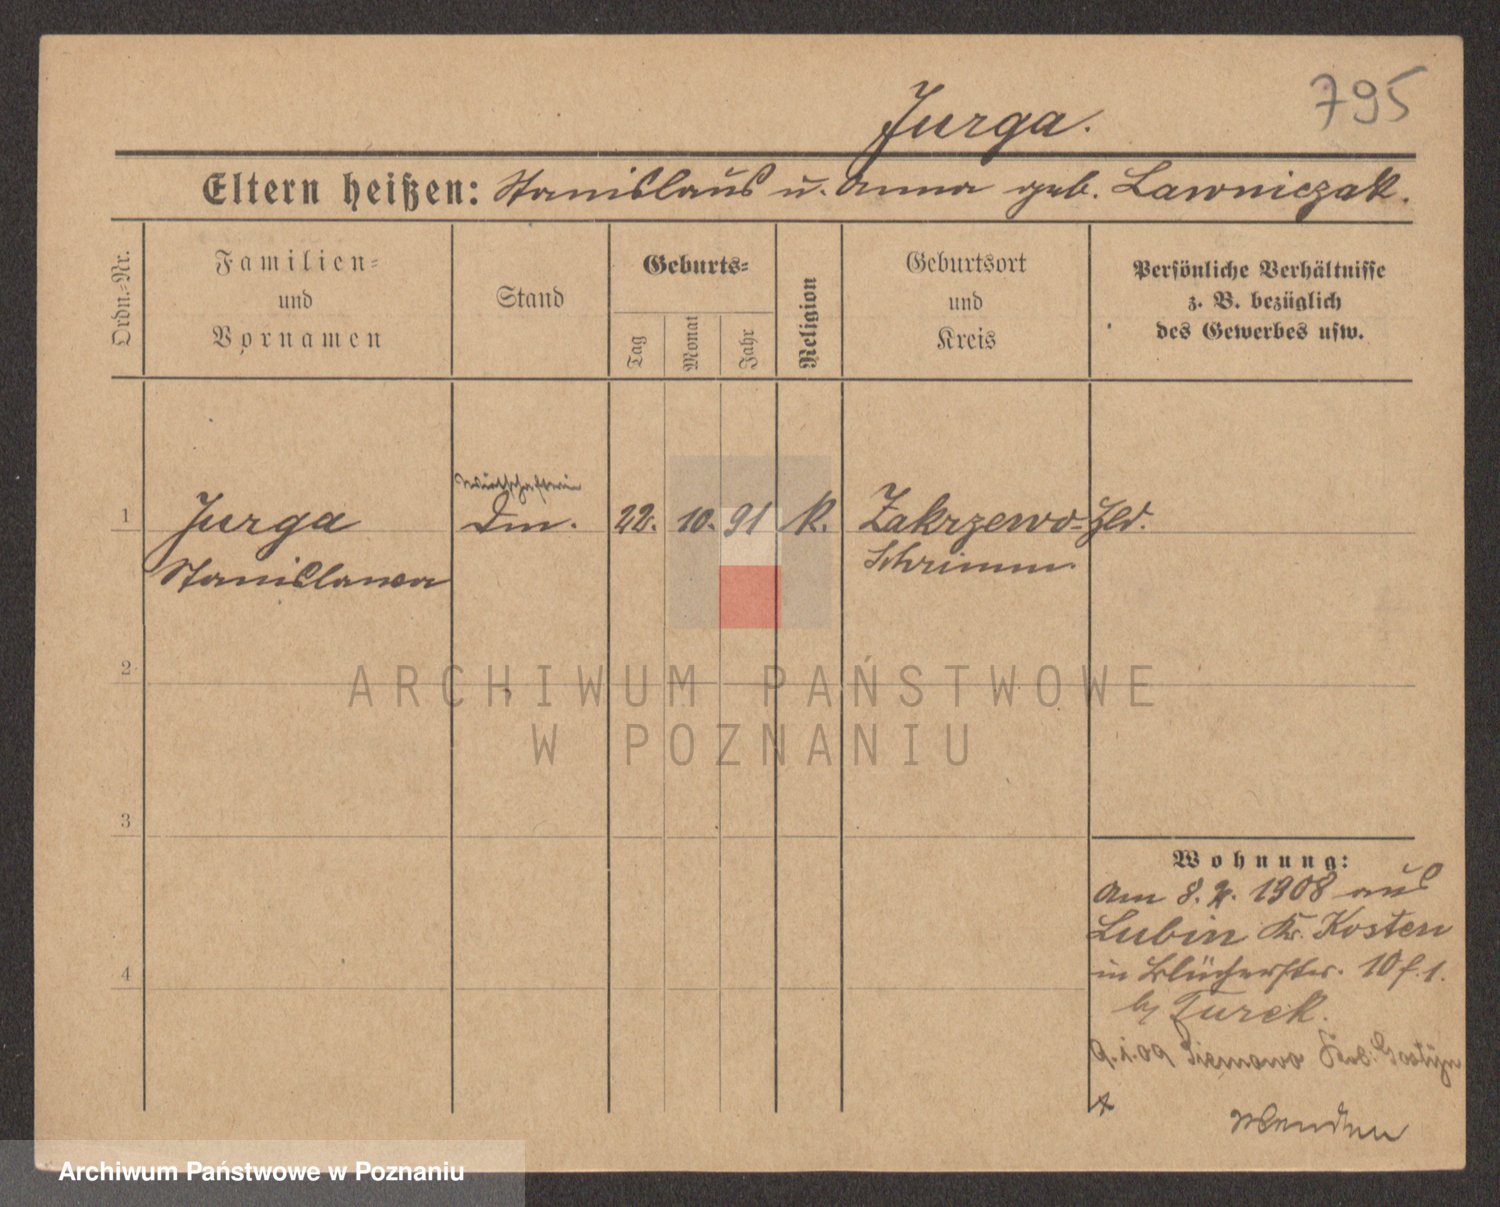 795
Jurga.
Eltern heißen: Stanislaus u. Anna geb. Lawniczak.
Ordn.-Nr.
Familien-
und
Vornamen
Stand
Geburts-
Tag
Monat
Jahr
Religion
Geburtsort
und
Kreis
Persönliche Verhältnisse
z. B. bezüglich
des Gewerbes usw.
Wirtschafterin
1 Jurga Dm. 22. 10. 91 K. Zakrzewo-Hld.
Stanislawa Schrimm.
2
ARCHIWUM PAŃSTWOWE
W POZNANIU
3
Wohnung:
am 8. 1908 aus
Lubin Kr. Kosten
in Blücherstr. 10
by Turek.
9.1.09 Siemowo Gostyn
4
Wenden
Archiwum Państwowe w Poznaniu